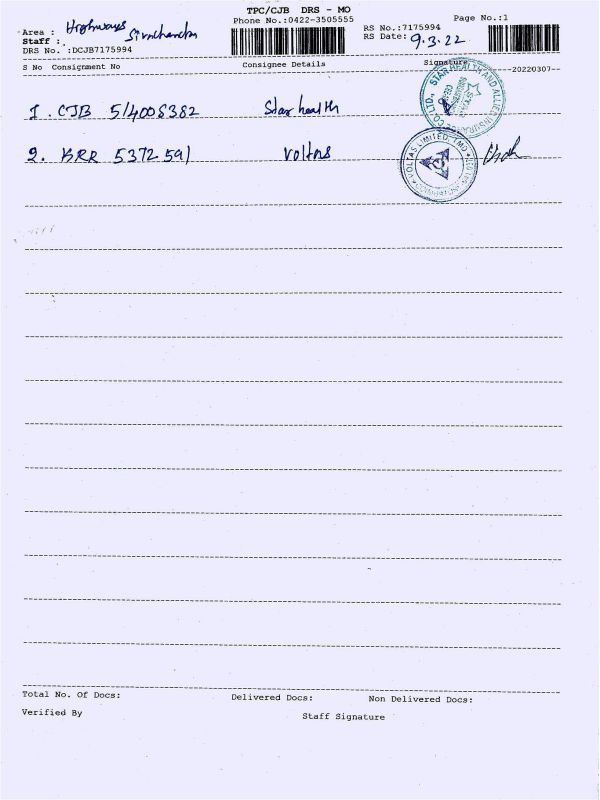 TPC/CJB DRS - MO
Phone No.:0422-3505555
Page No.:1
Area : Highways
Staff :
DRS No. :DCJB7175994
RS No.:7175994
RS Date: 9.3.22
S No Consignment No Consignee Details Signature
20220307
1. CJB 514008382 Star health
STAR HEALTH AND ALLIED INSURANCE CO. LTD.,
2. KRR 5372591 Voltas
VOLTAS LIMITED-TMD
COIMBATORE
Total No. Of Docs: Delivered Docs: Non Delivered Docs:
Verified By Staff Signature